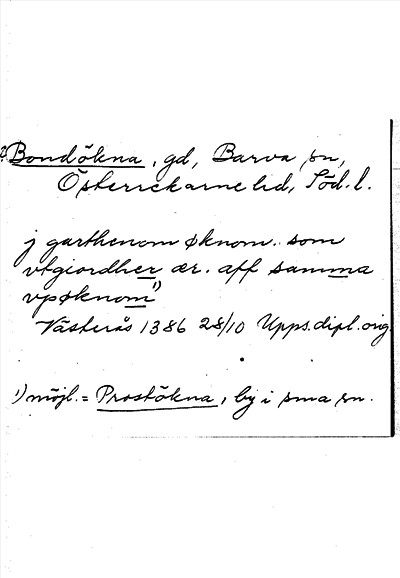 ? Bondökna, gd, Barva sn,
Österrekarne hd, Söd. l.
j garthenom øknom. som
vtgiordher ær. aff samma
vpøknom 1)
Västerås 1386 28/10 Upps.dipl. orig.
1) möjl. = Prostökna, by i sma sn.